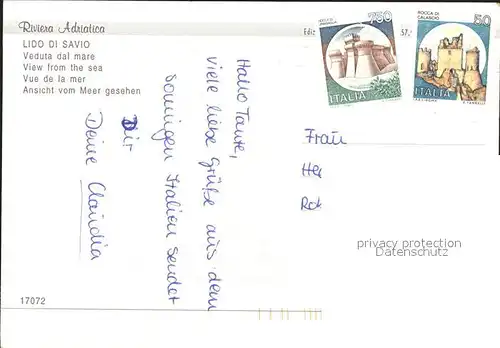 Riviera Adriatica
LIDO DI SAVIO
Veduta dal mare
View from the sea
Vue de la mer
Ansicht vom Meer gesehen
Hallo Tante,
viele liebe Grüße aus dem
sonnigen Italien sendet
Dir
Deine Claudia
750
ITALIA
50
ROCCA DI
CALASCIO
ITALIA
Frau
privacy protection
Datenschutz
17072